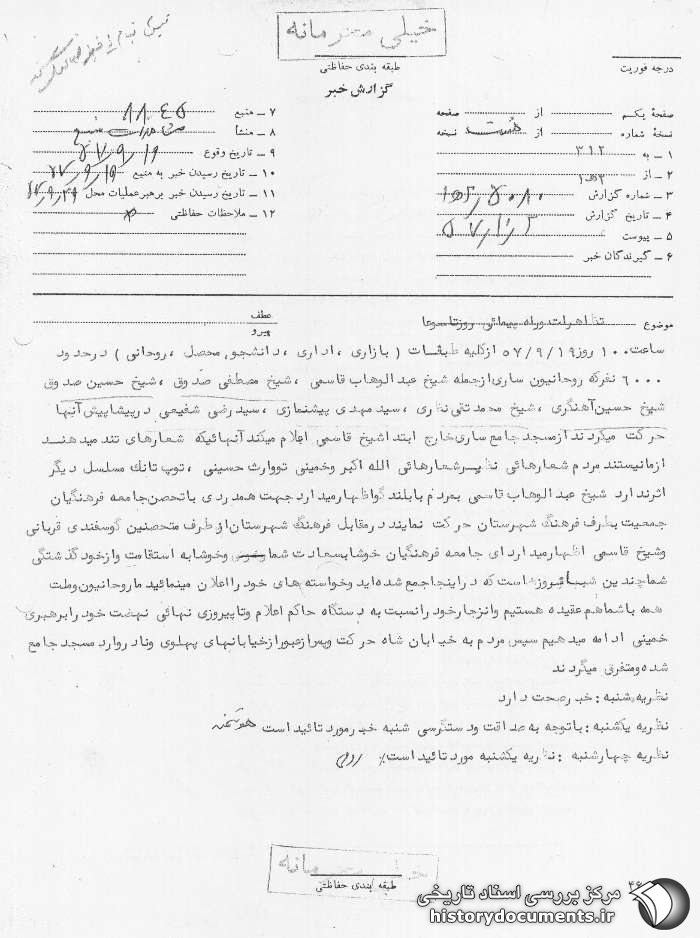 خیلی محرمانه
طبقه بندی حفاظتی
گزارش خبر
درجه فوریت
صفحهٔ یکم از صفحه
نسخهٔ شماره از هشت نسخه
۱ ـ به ۳۱۲
۲ ـ از
۳ ـ شماره گزارش
۴ ـ تاریخ گزارش ۵۷/۱۰/۳
۵ ـ پیوست
۶ ـ گیرندگان خبر
۷ ـ منبع
۸ ـ منشأ
۹ ـ تاریخ وقوع ۵۷/۹/۱۹
۱۰ ـ تاریخ رسیدن خبر به منبع
۱۱ ـ تاریخ رسیدن خبر برهبر عملیات محل
۱۲ ـ ملاحظات حفاظتی
موضوع تظاهرات و راه پیمائی روز تاسوعا
عطف
پیرو
ساعت ۱۰۰ روز ۵۷/۹/۱۹ از کلیه طبقات ( بازاری ، اداری ، دانشجو ، محصل ، روحانی ) در حدود
۶۰۰۰ نفر که روحانیون ساری از جمله شیخ عبدالوهاب قاسمی ، شیخ مصطفی صدوق ، شیخ حسین صدوق
شیخ حسین آهنگری ، شیخ محمد تقی نظاری ، سید مهدی پیشنمازی ، سید رضی شفیعی در پیشاپیش آنها
حرکت میکردند از مسجد جامع ساری خارج ابتدا شیخ قاسمی اعلام میکند آنهائیکه شعارهای تند میدهند
از ما نیستند مردم شعارهائی نظیر شعارهائی الله اکبر و خمینی تو وارث حسینی ، توپ تانک مسلسل دیگر
اثر ندارد شیخ عبدالوهاب قاسمی بمردم با بلندگو اظهار میدارد جهت همدردی با تحصن جامعه فرهنگیان
جمعیت بطرف فرهنگ شهرستان حرکت نمایند در مقابل فرهنگ شهرستان از طرف متحصنین گوسفندی قربانی
و شیخ قاسمی اظهار میدارد ای جامعه فرهنگیان خوشا بسعادت شما و خوشا به استقامت و از خود گذشتگی
شما چندین شبانه روز است که در اینجا جمع شده اید و خواسته های خود را اعلان مینمائید ما روحانیون و ملت
همه با شما هم عقیده هستیم و انزجار خود را نسبت به دستگاه حاکم اعلام و تا پیروزی نهائی نهضت خود را برهبری
خمینی ادامه میدهیم سپس مردم به خیابان شاه حرکت و پس از عبور از خیابانهای پهلوی و نادر وارد مسجد جامع
شده و متفرق میگردند
نظریه شنبه : خبر صحت دارد
نظریه یکشنبه : با توجه به صداقت و دسترسی شنبه خبر مورد تائید است
نظریه چهارشنبه : نظریه یکشنبه مورد تائید است
خیلی محرمانه
طبقه بندی حفاظتی
مرکز بررسی اسناد تاریخی
historydocuments.ir